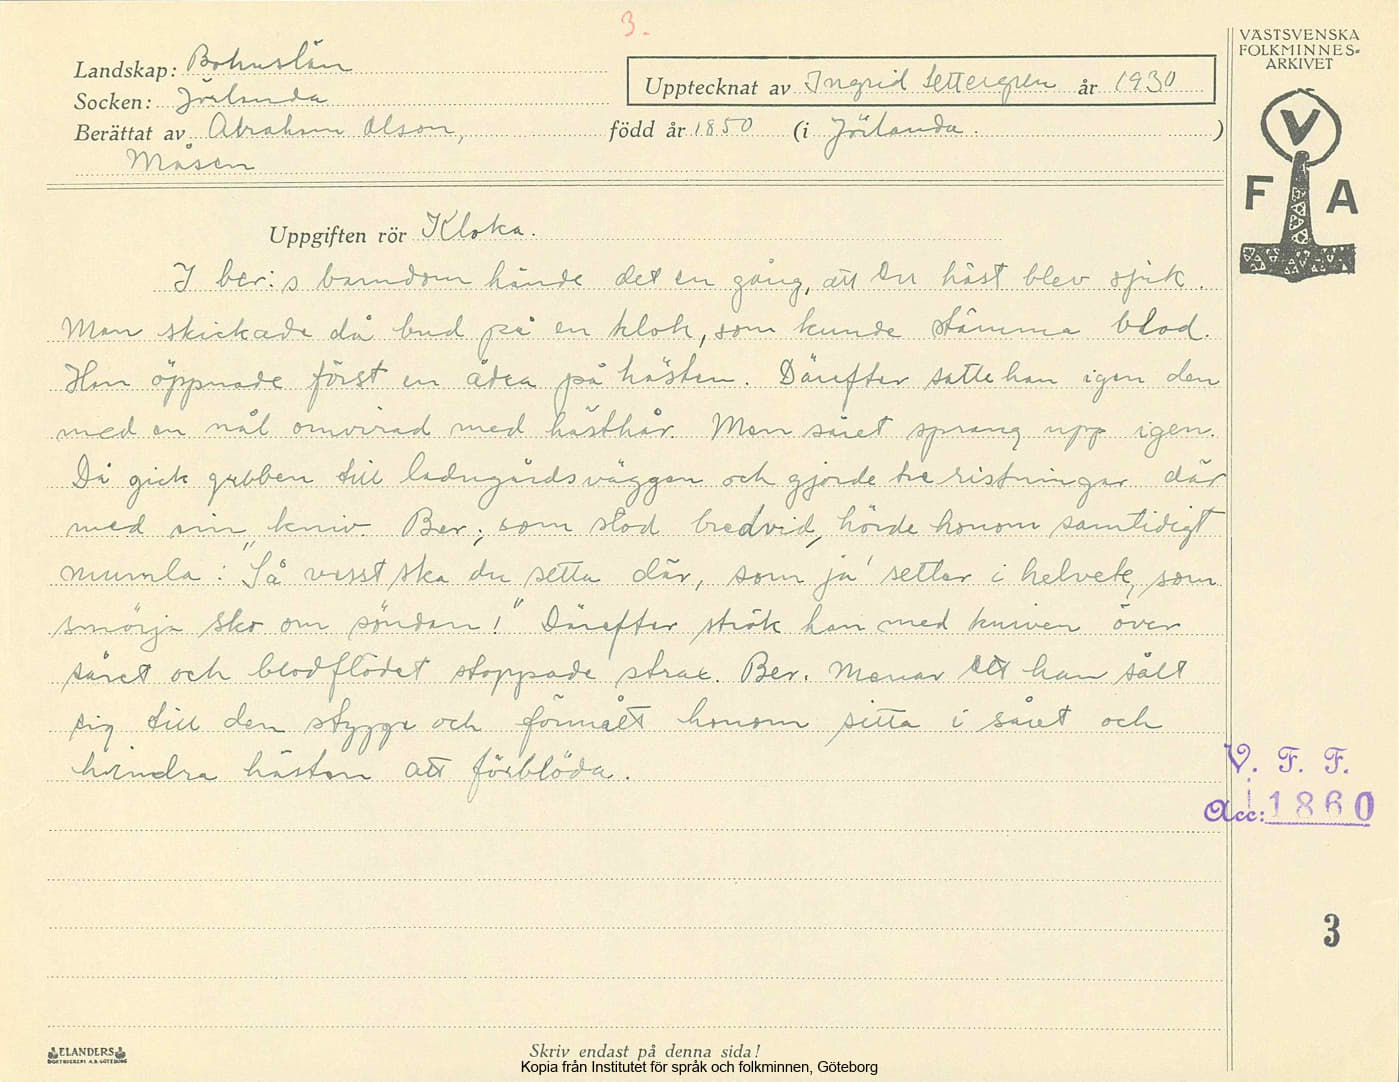 3.
VÄSTSVENSKA
FOLKMINNES-
ARKIVET
Landskap: Bohuslän
Socken: Jörlanda
Upptecknat av Ingrid Settergren år 1930
Berättat av Abraham Olson, född år 1850 (i Jörlanda. )
Måsen
V
F A
Uppgiften rör Kloka.
I ber:s barndom hände det en gång, att en häst blev sjuk.
Man skickade då bud på en klok, som kunde stämma blod.
Han öppnade först en ådra på hästen. Därefter satte han igen den
med en nål omvirad med hästhår. Men såret sprang upp igen.
Då gick gubben till ladugårdsväggen och gjorde tre ristningar där
med sin kniv. Ber., som stod bredvid, hörde honom samtidigt
mumla: "Så visst ska du setta där, som ja' setter i helvete, som
smörja sko om söndan!" Därefter strök han med kniven över
såret och blodflödet stoppade strax. Ber. menar att han sålt
sig till den stygge och förmått honom sitta i såret och
hindra hästen att förblöda.
V. F. F.
Acc: 1860
3
ELANDERS
BOKTRYCKERI A.B. GÖTEBORG
Skriv endast på denna sida!
Kopia från Institutet för språk och folkminnen, Göteborg